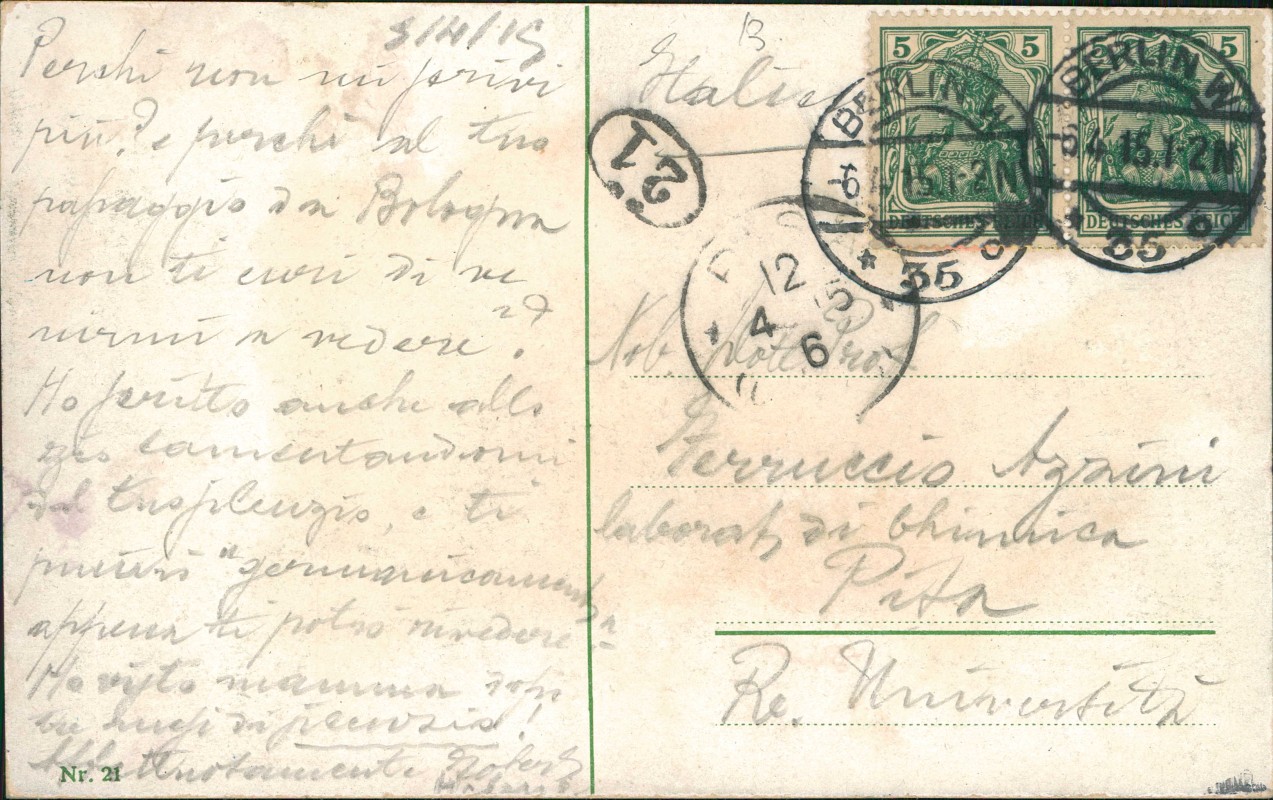 8/4/15
Perchè non mi scrivi
più? e perchè al tuo
passaggio da Bologna
non ti curi di ve
nirmi a vedere?
Ho scritto anche allo
zio lamentandomi
del tuo silenzio, e ti
punirò "germanicamente"
appena ti potrò rivedere!
Ho visto mamma dopo
tre mesi di silenzio!
Nr. 21
B
Italia
21
5 5
DEUTSCHES REICH
5 5
DEUTSCHES REICH
BERLIN W
6.4.15.1-2N
* 35 c
BERLIN W
6.4.15.1-2N
* 35 c
12
4 15
6
Nob. Dott. Prof.
Ferruccio Azzini
laborat. di Chimica
Pisa
Re. Università